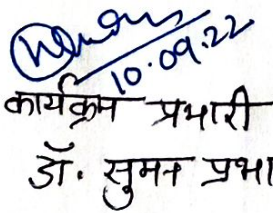 10.09.22
कार्यक्रम प्रभारी
डॉ. सुमन प्रभा